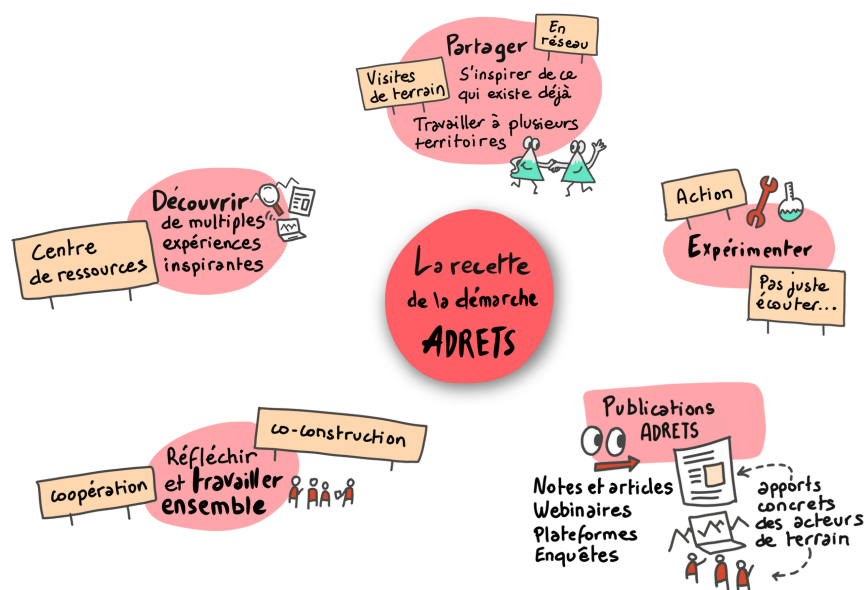 La recette
de la démarche
ADRETS
Partager
En
réseau
Visites
de terrain
S'inspirer de ce
qui existe déjà
Travailler à plusieurs
territoires
Action
Expérimenter
Pas juste
écouter...
Publications
ADRETS
Notes et articles
Webinaires
Plateformes
Enquêtes
apports
concrets
des acteurs
de terrain
co-construction
Réfléchir
et travailler
ensemble
coopération
Découvrir
de multiples
expériences
inspirantes
Centre
de ressources